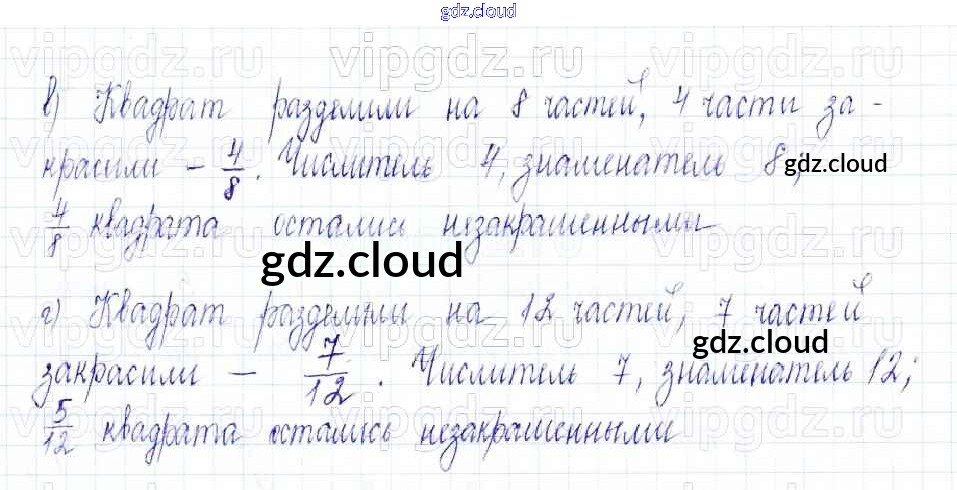 gdz.cloud
в) Квадрат разделили на 8 частей, 4 части за-
красили – 4/8. Числитель 4, знаменатель 8;
gdz.cloud
4/8 квадрата остались незакрашенными
gdz.cloud
г) Квадрат разделили на 12 частей, 7 частей
gdz.cloud
закрасили – 7/12. Числитель 7, знаменатель 12;
5/12 квадрата остались незакрашенными